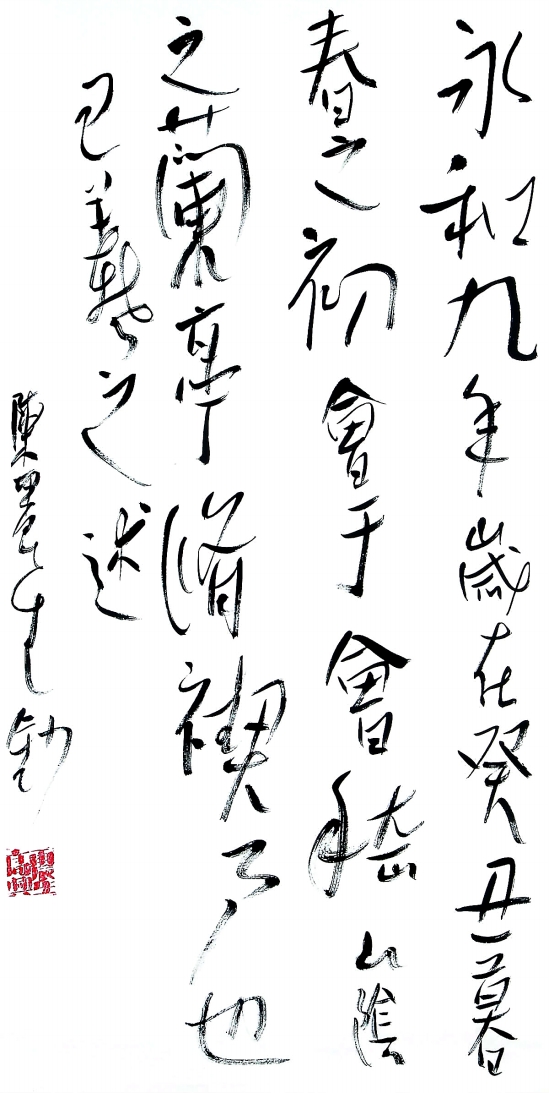 永和九年歲在癸丑暮
春之初會于會稽山陰
之蘭亭脩禊事也
已羲之述
陳墨生鈔